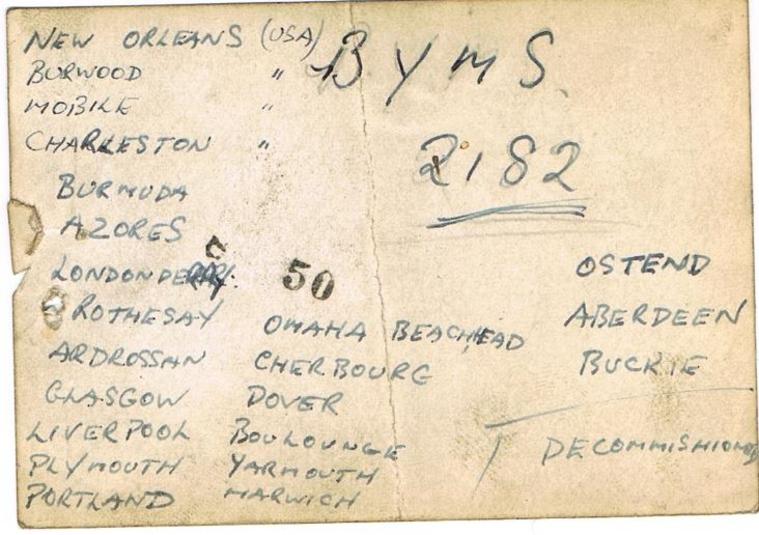 NEW ORLEANS (USA)
BURWOOD "
MOBILE "
CHARLESTON "
BURMUDA
AZORES
LONDONDERRY.
ROTHESAY
ARDROSSAN
GLASGOW
LIVERPOOL
PLYMOUTH
PORTLAND
BYMS.
2182
50
OMAHA BEACHHEAD
CHERBOURG
DOVER
BOULOUNGE
YARMOUTH
HARWICH
OSTEND
ABERDEEN
BUCKIE
DECOMMISHIONED